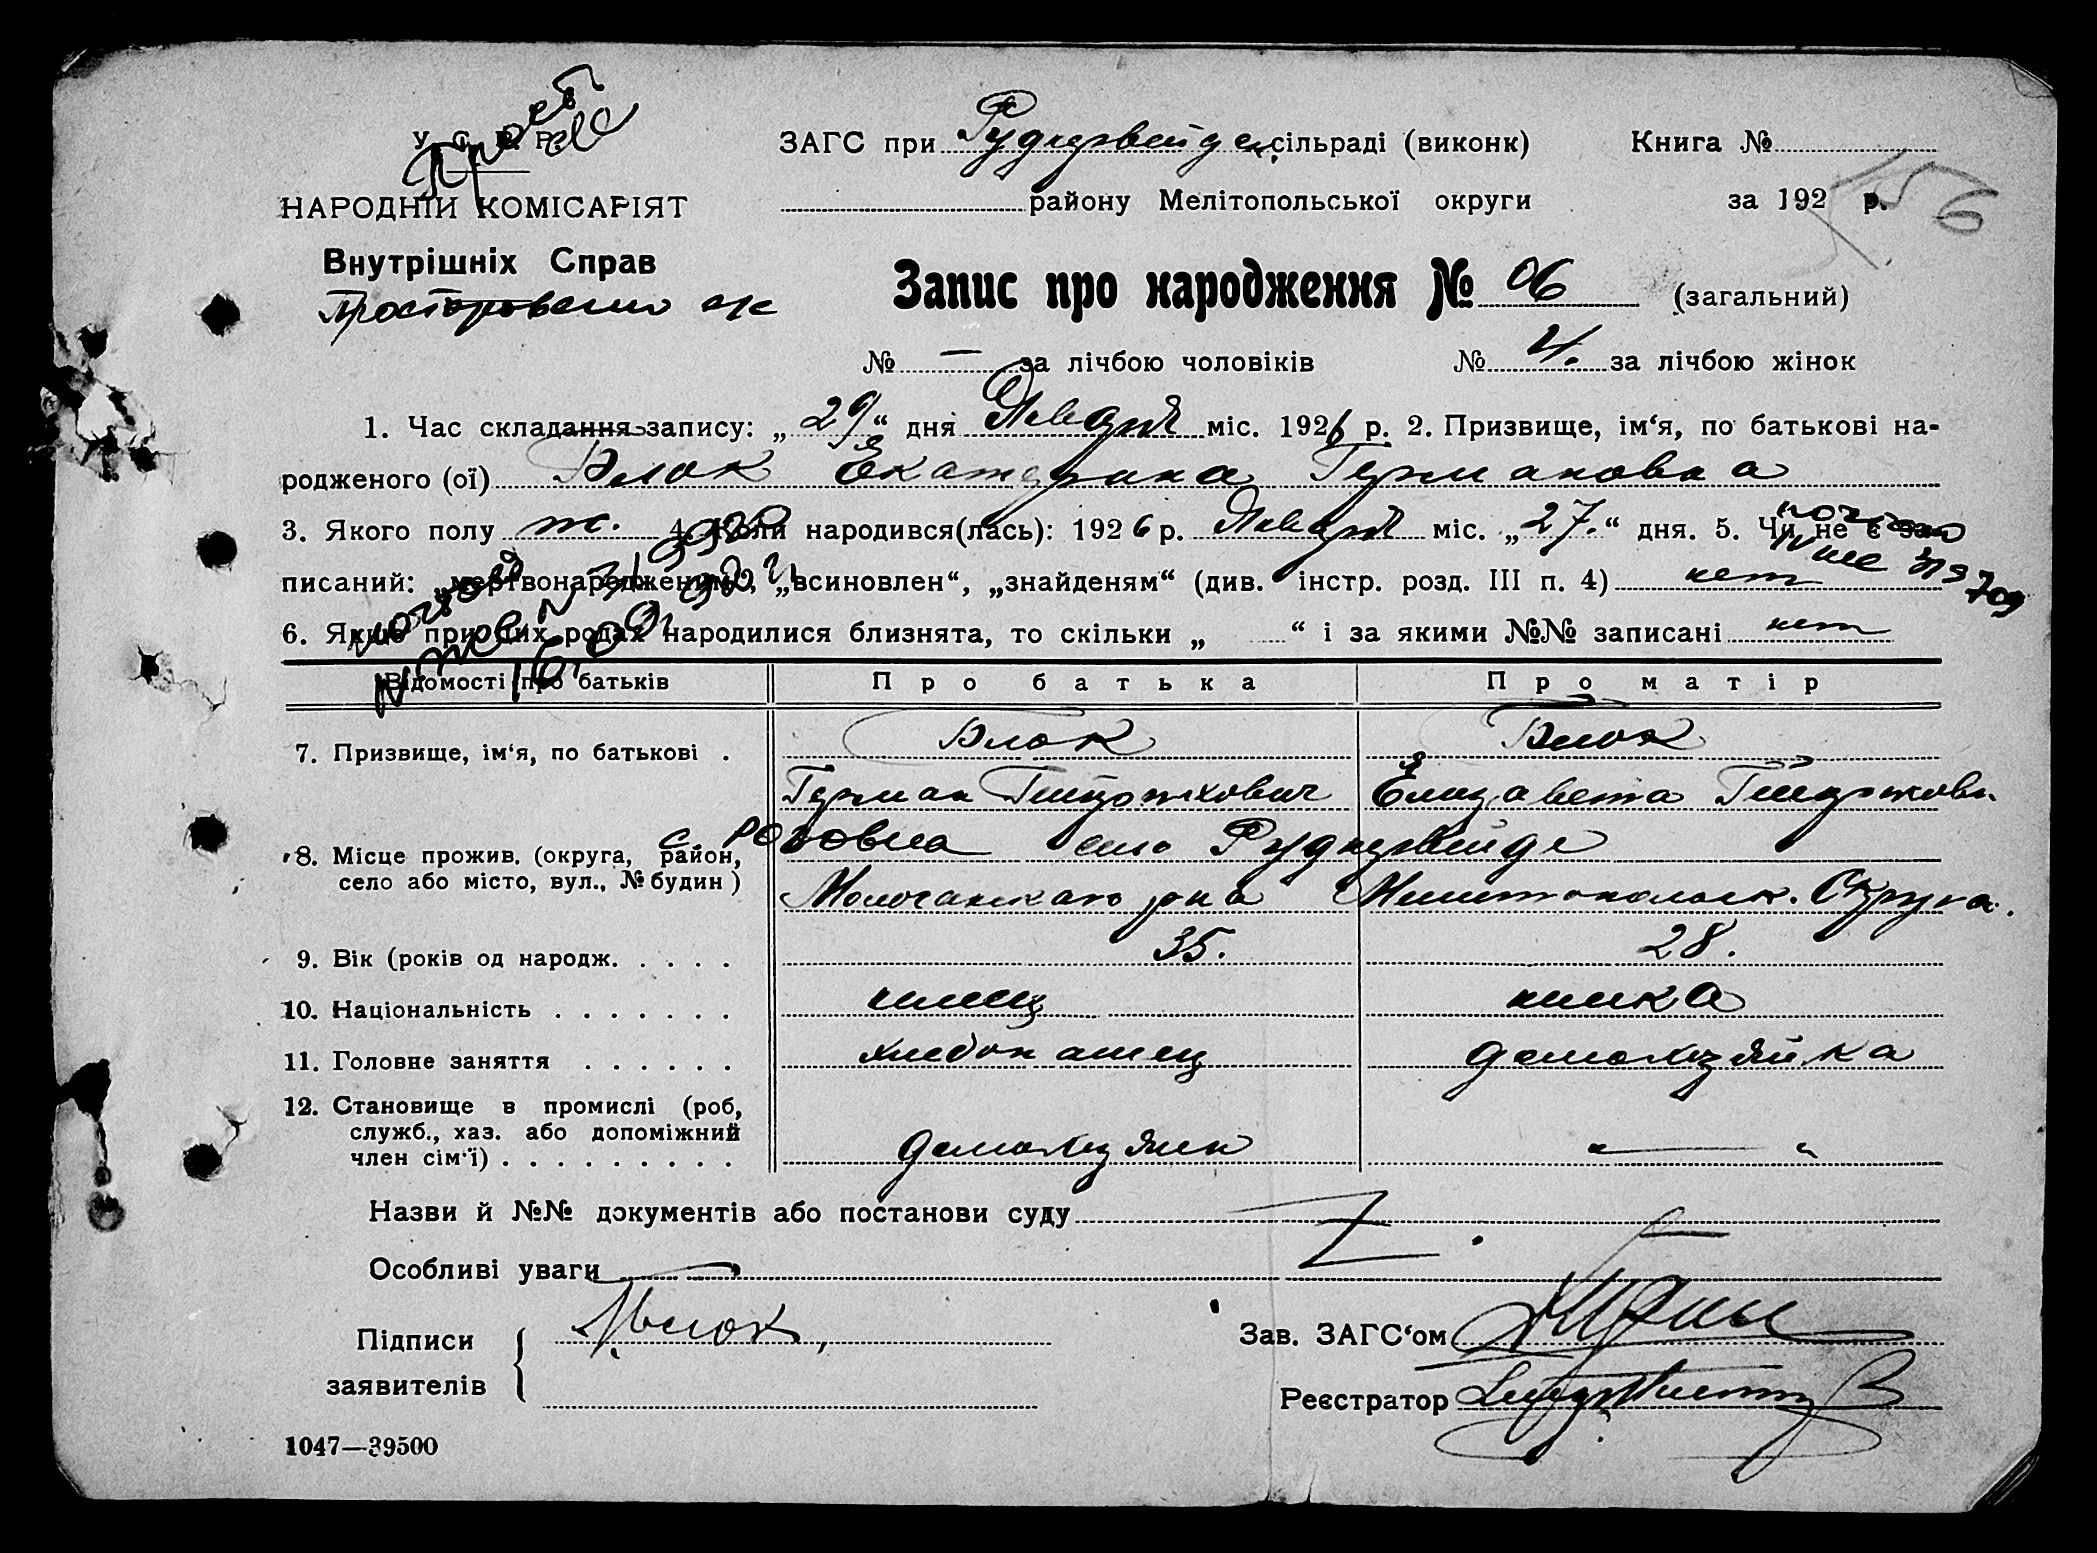 У. С. Р. Р.
ЗАГС при Руднервейде сільраді (виконк)
Книга №
НАРОДНІЙ КОМІСАРІЯТ
району Мелітопольської округи
за 192 р. 6
Внутрішніх Справ
Запис про народження № 06 (загальний)
№ — за лічбою чоловіків № 4. за лічбою жінок
1. Час складання запису: „ 29 “ дня Января міс. 1926 р. 2. Призвище, ім‘я, по батькові на-
родженого (ої) Блок Екатерина Германовна
3. Якого полу ж. 4. Коли народився(лась): 1926 р. Января міс. „ 27. “ дня. 5. Чи не є за-
писаний: „мертвонародженим“, „всиновлен“, „знайденям“ (див. інстр. розд. III п. 4) нет
6. Якщо при цих родах народилися близнята, то скільки „ “ і за якими №№ записані нет
Відомості про батьків
Про батька
Про матір
7. Призвище, ім‘я, по батькові .
Блок
Блок
Герман Генрихович
Елизавета Генрихов.
8. Місце прожив. (округа, район,
село або місто, вул., № будин)
с. Розовка
село Руднервейде
Молочанского р-на Мелитопольск. Округа.
9. Вік (років од народж. . . . .
35.
28.
10. Національність . . . . . . .
немец
немка
11. Головне заняття . . . . . .
хлебопашец
домохозяйка
12. Становище в промислі (роб,
служб., хаз. або допоміжний
член сім‘ї) . . . . . . . . .
домохозяин
„ — „
Назви й №№ документів або постанови суду
Особливі уваги
Підписи
заявителів
Г. Блок
Зав. ЗАГС‘ом
Реєстратор
1047—39500